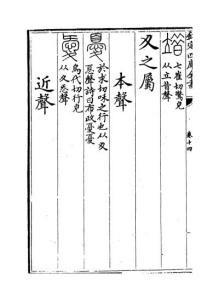 欽定四庫全書
卷十四
七雀切驚皃
从立昔聲
夊之屬
本聲
於求切和之行也从夊
㥑聲詩曰布政憂憂
烏代切行皃
从夊㤅聲
近聲